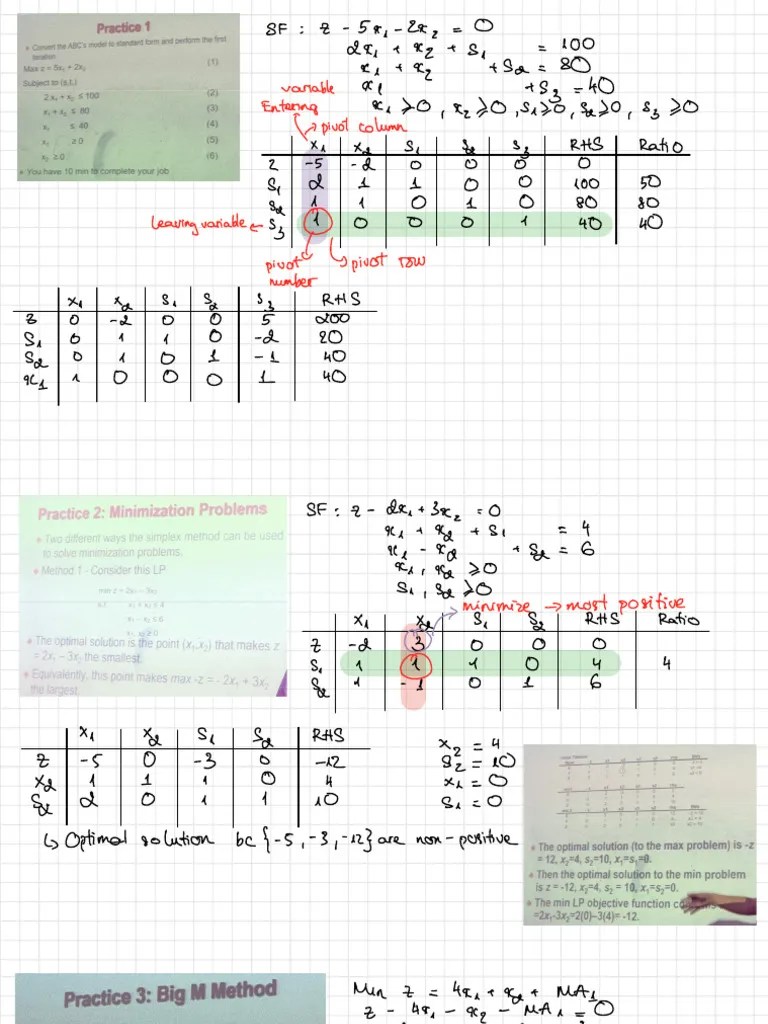 Practice 1
Convert the ABC's model to standard form and perform the first
iteration
Max z = 5x₁ + 2x₂ (1)
Subject to (s.t.)
2x₁ + x₂ ≤ 100 (2)
x₁ + x₂ ≤ 80 (3)
x₁ ≤ 40 (4)
x₁ ≥ 0 (5)
x₂ ≥ 0 (6)
You have 10 min to complete your job
SF : z - 5x₁ - 2x₂ = 0
2x₁ + x₂ + S₁ = 100
x₁ + x₂ + S₂ = 80
x₁ + S₃ = 40
x₁ ≥ 0, x₂ ≥ 0, S₁ ≥ 0, S₂ ≥ 0, S₃ ≥ 0
variable
Entering
→ pivot column
x₁ x₂ S₁ S₂ S₃ RHS Ratio
z -5 -2 0 0 0 0
S₁ 2 1 1 0 0 100 50
S₂ 1 1 0 1 0 80 80
leaving variable ← S₃ 1 0 0 0 1 40 40
pivot
number
↳ pivot row
x₁ x₂ S₁ S₂ S₃ RHS
z 0 -2 0 0 5 200
S₁ 0 1 1 0 -2 20
S₂ 0 1 0 1 -1 40
x₁ 1 0 0 0 1 40
Practice 2: Minimization Problems
Two different ways the simplex method can be used
to solve minimization problems.
Method 1 - Consider this LP
min z = 2x₁ - 3x₂
s.t. x₁ + x₂ ≤ 4
x₁ - x₂ ≤ 6
x₁, x₂ ≥ 0
The optimal solution is the point (x₁,x₂) that makes z
= 2x₁ – 3x₂ the smallest.
Equivalently, this point makes max -z = - 2x₁ + 3x₂
the largest.
SF : z - 2x₁ + 3x₂ = 0
x₁ + x₂ + S₁ = 4
x₁ - x₂ + S₂ = 6
x₁, x₂ ≥ 0
S₁, S₂ ≥ 0
minimize → most positive
x₁ x₂ S₁ S₂ RHS Ratio
z -2 3 0 0 0
S₁ 1 1 1 0 4 4
S₂ 1 -1 0 1 6
x₁ x₂ S₁ S₂ RHS
z -5 0 -3 0 -12
x₂ 1 1 1 0 4
S₂ 2 0 1 1 10
↳ Optimal solution bc {-5, -3, -12} are non-positive
x₂ = 4
S₂ = 10
x₁ = 0
S₁ = 0
The optimal solution (to the max problem) is -z
= 12, x₂=4, s₂=10, x₁=s₁=0.
Then the optimal solution to the min problem
is z = -12, x₂=4, s₂ = 10, x₁=s₂=0.
The min LP objective function
=2x₁-3x₂=2(0)–3(4)= -12.
Practice 3: Big M Method
Min z = 4x₁ + x₂ + MA₁
z - 4x₁ - x₂ - MA₁ = 0